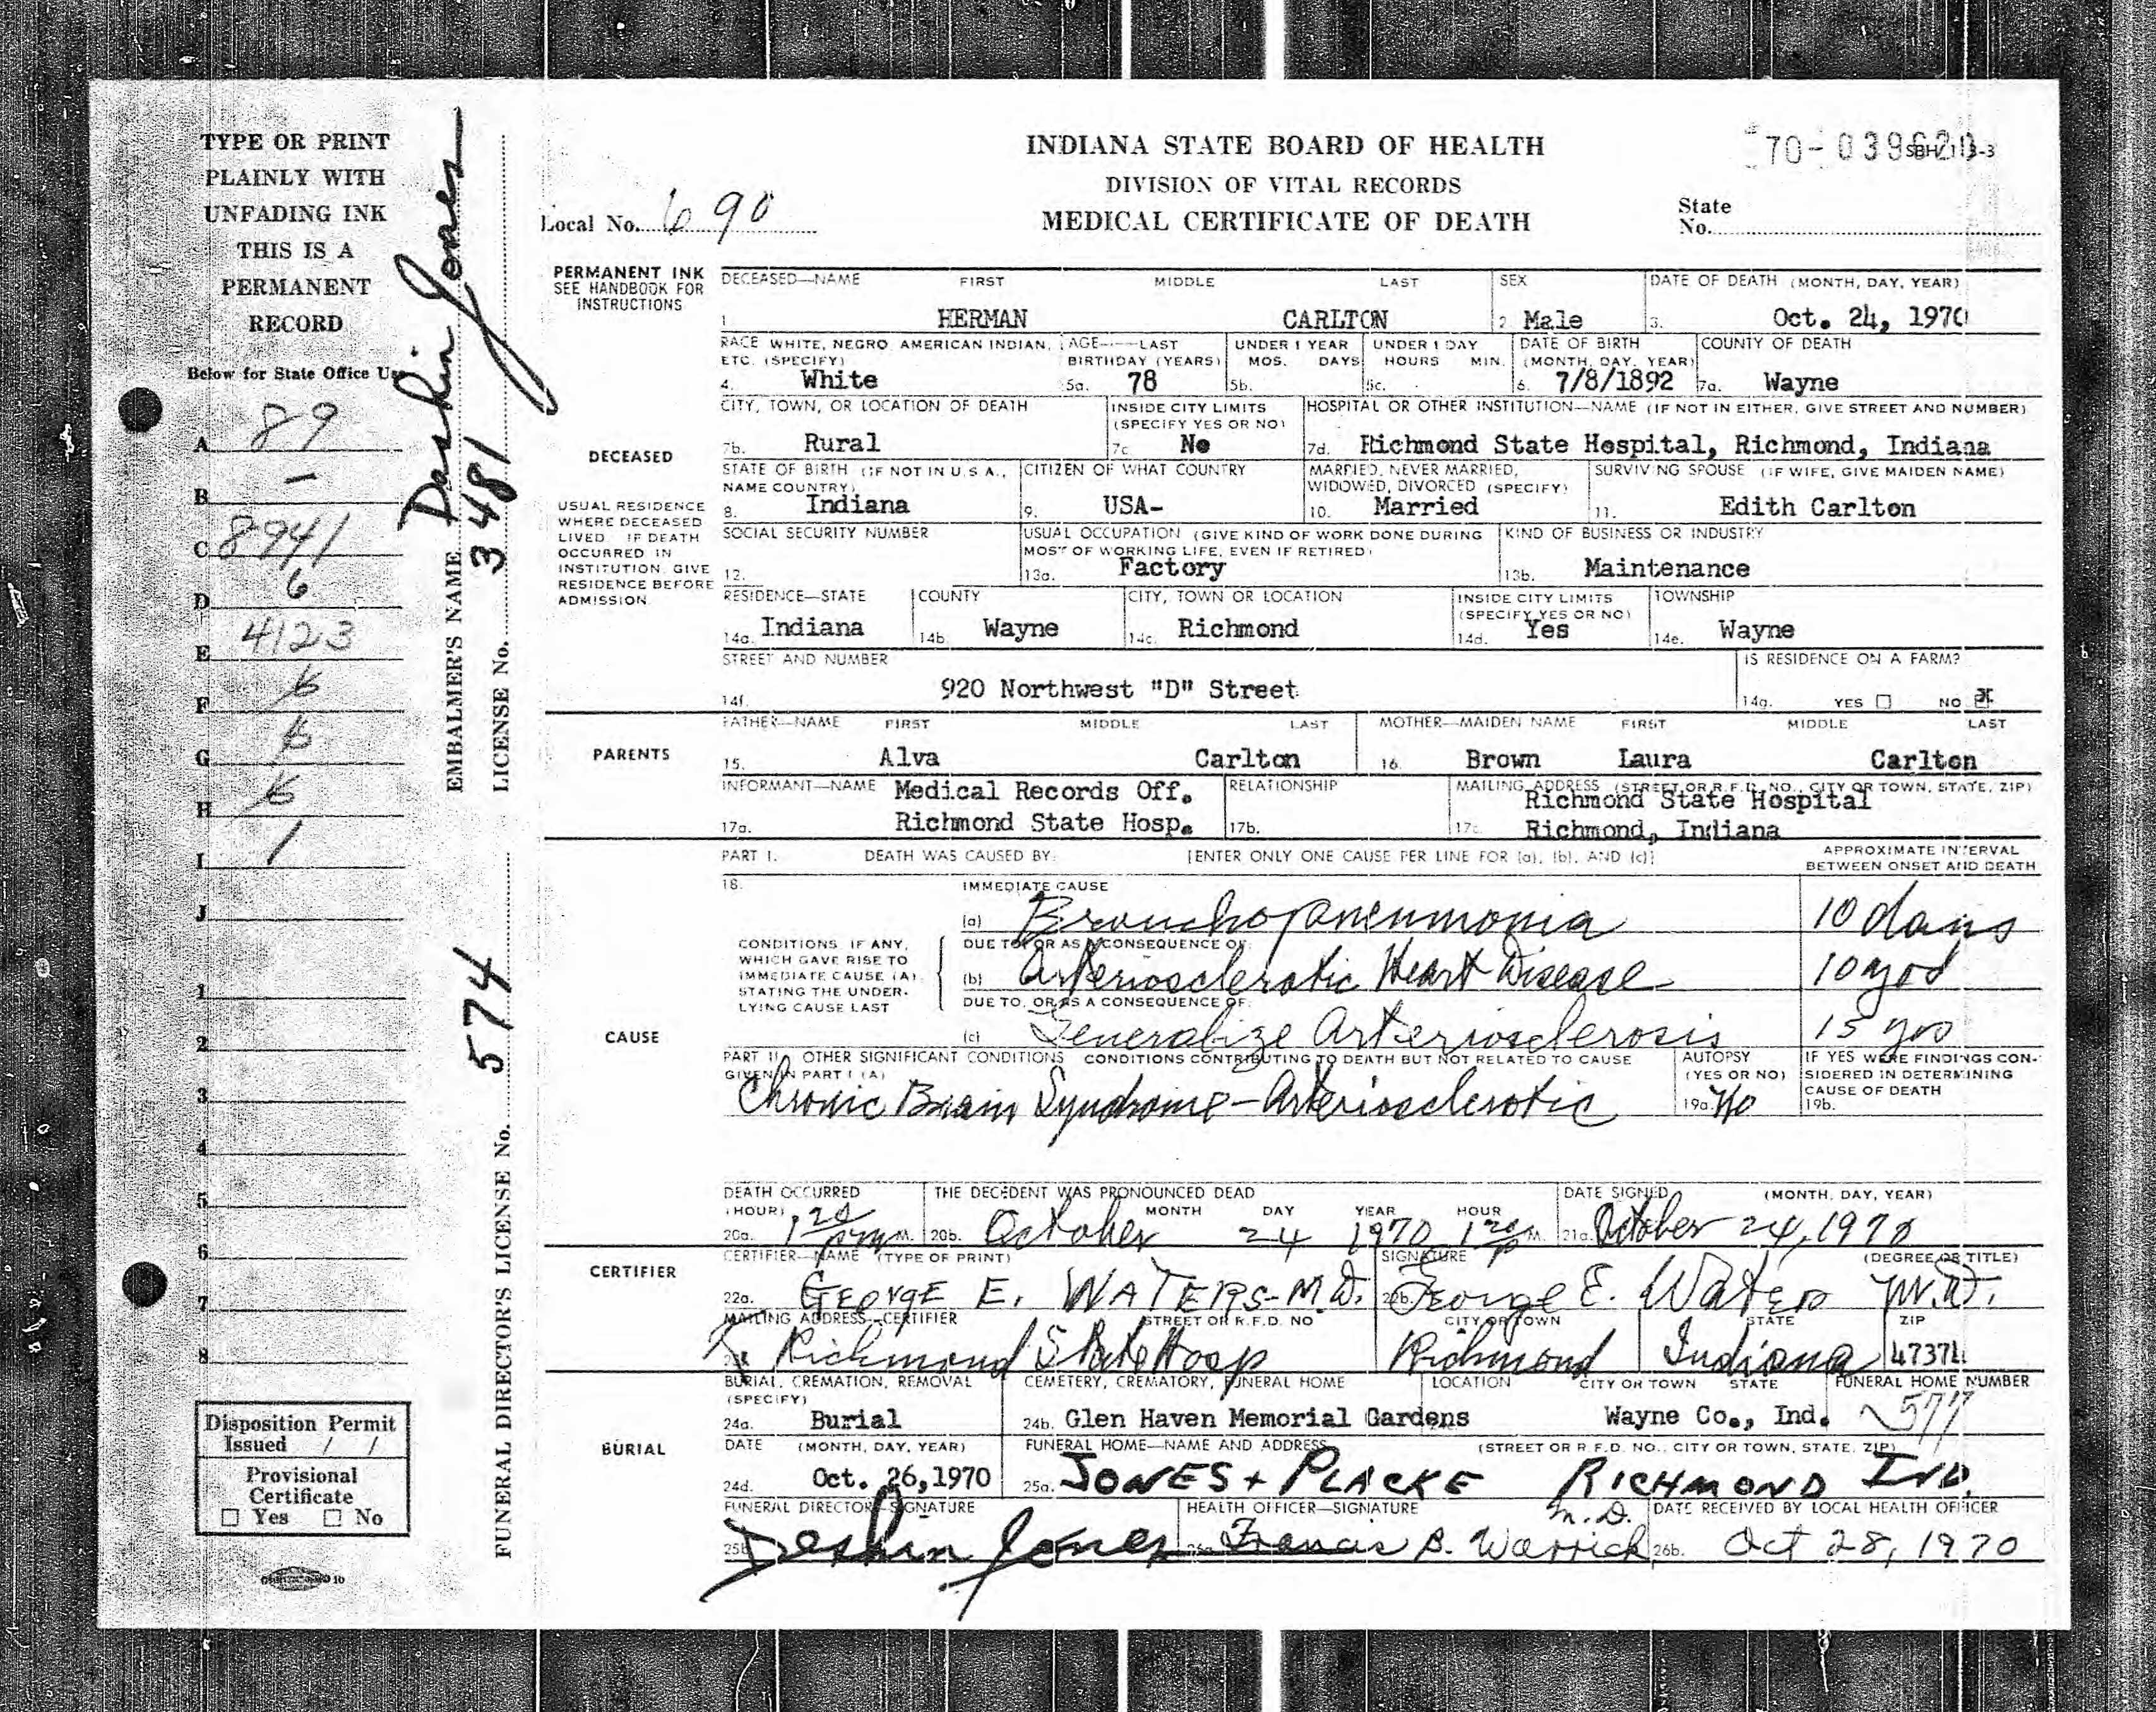 TYPE OR PRINT
PLAINLY WITH
UNFADING INK
THIS IS A
PERMANENT
RECORD
Below for State Office Use
A 89
B –
C 8941
D 6
E 4123
F 6
G 6
H 6
I 1
J
1
2
3
4
5
6
7
8
Disposition Permit
Issued / /
Provisional
Certificate
☐ Yes ☐ No
EMBALMER'S NAME Dashin Jones
LICENSE No. 3481
FUNERAL DIRECTOR'S LICENSE No. 574
INDIANA STATE BOARD OF HEALTH
DIVISION OF VITAL RECORDS
MEDICAL CERTIFICATE OF DEATH
70-039620
Local No. 690
State
No.
PERMANENT INK
SEE HANDBOOK FOR
INSTRUCTIONS
DECEASED—NAME FIRST MIDDLE LAST SEX DATE OF DEATH (MONTH, DAY, YEAR)
1 HERMAN CARLTON 2. Male 3. Oct. 24, 1970
RACE WHITE, NEGRO, AMERICAN INDIAN, AGE—LAST UNDER 1 YEAR UNDER 1 DAY DATE OF BIRTH COUNTY OF DEATH
ETC. (SPECIFY) BIRTHDAY (YEARS) MOS. DAYS HOURS MIN. (MONTH, DAY, YEAR)
4. White 5a. 78 5b. 5c. 6. 7/8/1892 7a. Wayne
CITY, TOWN, OR LOCATION OF DEATH INSIDE CITY LIMITS HOSPITAL OR OTHER INSTITUTION—NAME (IF NOT IN EITHER, GIVE STREET AND NUMBER)
(SPECIFY YES OR NO)
DECEASED 7b. Rural 7c. No 7d. Richmond State Hospital, Richmond, Indiana
STATE OF BIRTH (IF NOT IN U.S.A., CITIZEN OF WHAT COUNTRY MARRIED, NEVER MARRIED, SURVIVING SPOUSE (IF WIFE, GIVE MAIDEN NAME)
NAME COUNTRY) WIDOWED, DIVORCED (SPECIFY)
8. Indiana 9. USA- 10. Married 11. Edith Carlton
USUAL RESIDENCE
WHERE DECEASED
LIVED IF DEATH
OCCURRED IN
INSTITUTION, GIVE
RESIDENCE BEFORE
ADMISSION.
SOCIAL SECURITY NUMBER USUAL OCCUPATION (GIVE KIND OF WORK DONE DURING KIND OF BUSINESS OR INDUSTRY
MOST OF WORKING LIFE, EVEN IF RETIRED)
12. 13a. Factory 13b. Maintenance
RESIDENCE—STATE COUNTY CITY, TOWN OR LOCATION INSIDE CITY LIMITS TOWNSHIP
(SPECIFY YES OR NO)
14a. Indiana 14b. Wayne 14c. Richmond 14d. Yes 14e. Wayne
STREET AND NUMBER IS RESIDENCE ON A FARM?
14f. 920 Northwest "D" Street 14g. YES ☐ NO X
FATHER—NAME FIRST MIDDLE LAST MOTHER—MAIDEN NAME FIRST MIDDLE LAST
PARENTS 15. Alva Carlton 16. Brown Laura Carlton
INFORMANT—NAME Medical Records Off. RELATIONSHIP MAILING ADDRESS (STREET OR R.F.D. NO., CITY OR TOWN, STATE, ZIP)
Richmond State Hospital
17a. Richmond State Hosp. 17b. 17c. Richmond, Indiana
PART I. DEATH WAS CAUSED BY: [ENTER ONLY ONE CAUSE PER LINE FOR (a), (b), AND (c)] APPROXIMATE INTERVAL
BETWEEN ONSET AND DEATH
18. IMMEDIATE CAUSE
(a) Bronchopneumonia 10 days
CONDITIONS, IF ANY,
WHICH GAVE RISE TO
IMMEDIATE CAUSE (A)
STATING THE UNDER-
LYING CAUSE LAST
DUE TO, OR AS A CONSEQUENCE OF:
(b) Arteriosclerotic Heart Disease 10 yrs
DUE TO, OR AS A CONSEQUENCE OF:
CAUSE (c) Generalize Arteriosclerosis 15 yrs
PART II. OTHER SIGNIFICANT CONDITIONS CONDITIONS CONTRIBUTING TO DEATH BUT NOT RELATED TO CAUSE AUTOPSY IF YES WERE FINDINGS CON-
GIVEN IN PART I (A) (YES OR NO) SIDERED IN DETERMINING
CAUSE OF DEATH
Chronic Brain Syndrome-Arteriosclerotic 19a. No 19b.
DEATH OCCURRED THE DECEDENT WAS PRONOUNCED DEAD DATE SIGNED (MONTH, DAY, YEAR)
(HOUR) MONTH DAY YEAR HOUR
20a. 1 20 pm M. 20b. October 24 1970 1 20 P M. 21a. October 24, 1970
CERTIFIER—NAME (TYPE OR PRINT) SIGNATURE (DEGREE OR TITLE)
CERTIFIER 22a. GEORGE E. WATERS-M.D. 22b. George E. Waters M.D.
MAILING ADDRESS—CERTIFIER STREET OR R.F.D. NO CITY OR TOWN STATE ZIP
Richmond State Hosp Richmond Indiana 47374
BURIAL, CREMATION, REMOVAL CEMETERY, CREMATORY, FUNERAL HOME LOCATION CITY OR TOWN STATE FUNERAL HOME NUMBER
(SPECIFY)
24a. Burial 24b. Glen Haven Memorial Gardens 24c. Wayne Co., Ind. 577
BURIAL DATE (MONTH, DAY, YEAR) FUNERAL HOME—NAME AND ADDRESS (STREET OR R.F.D. NO., CITY OR TOWN, STATE, ZIP)
24d. Oct. 26,1970 25a. JONES + PLACKE RICHMOND IND.
FUNERAL DIRECTOR—SIGNATURE HEALTH OFFICER—SIGNATURE M.D. DATE RECEIVED BY LOCAL HEALTH OFFICER
25b. Deshin Jones 26a. Francis B. Warrick 26b. Oct 28, 1970